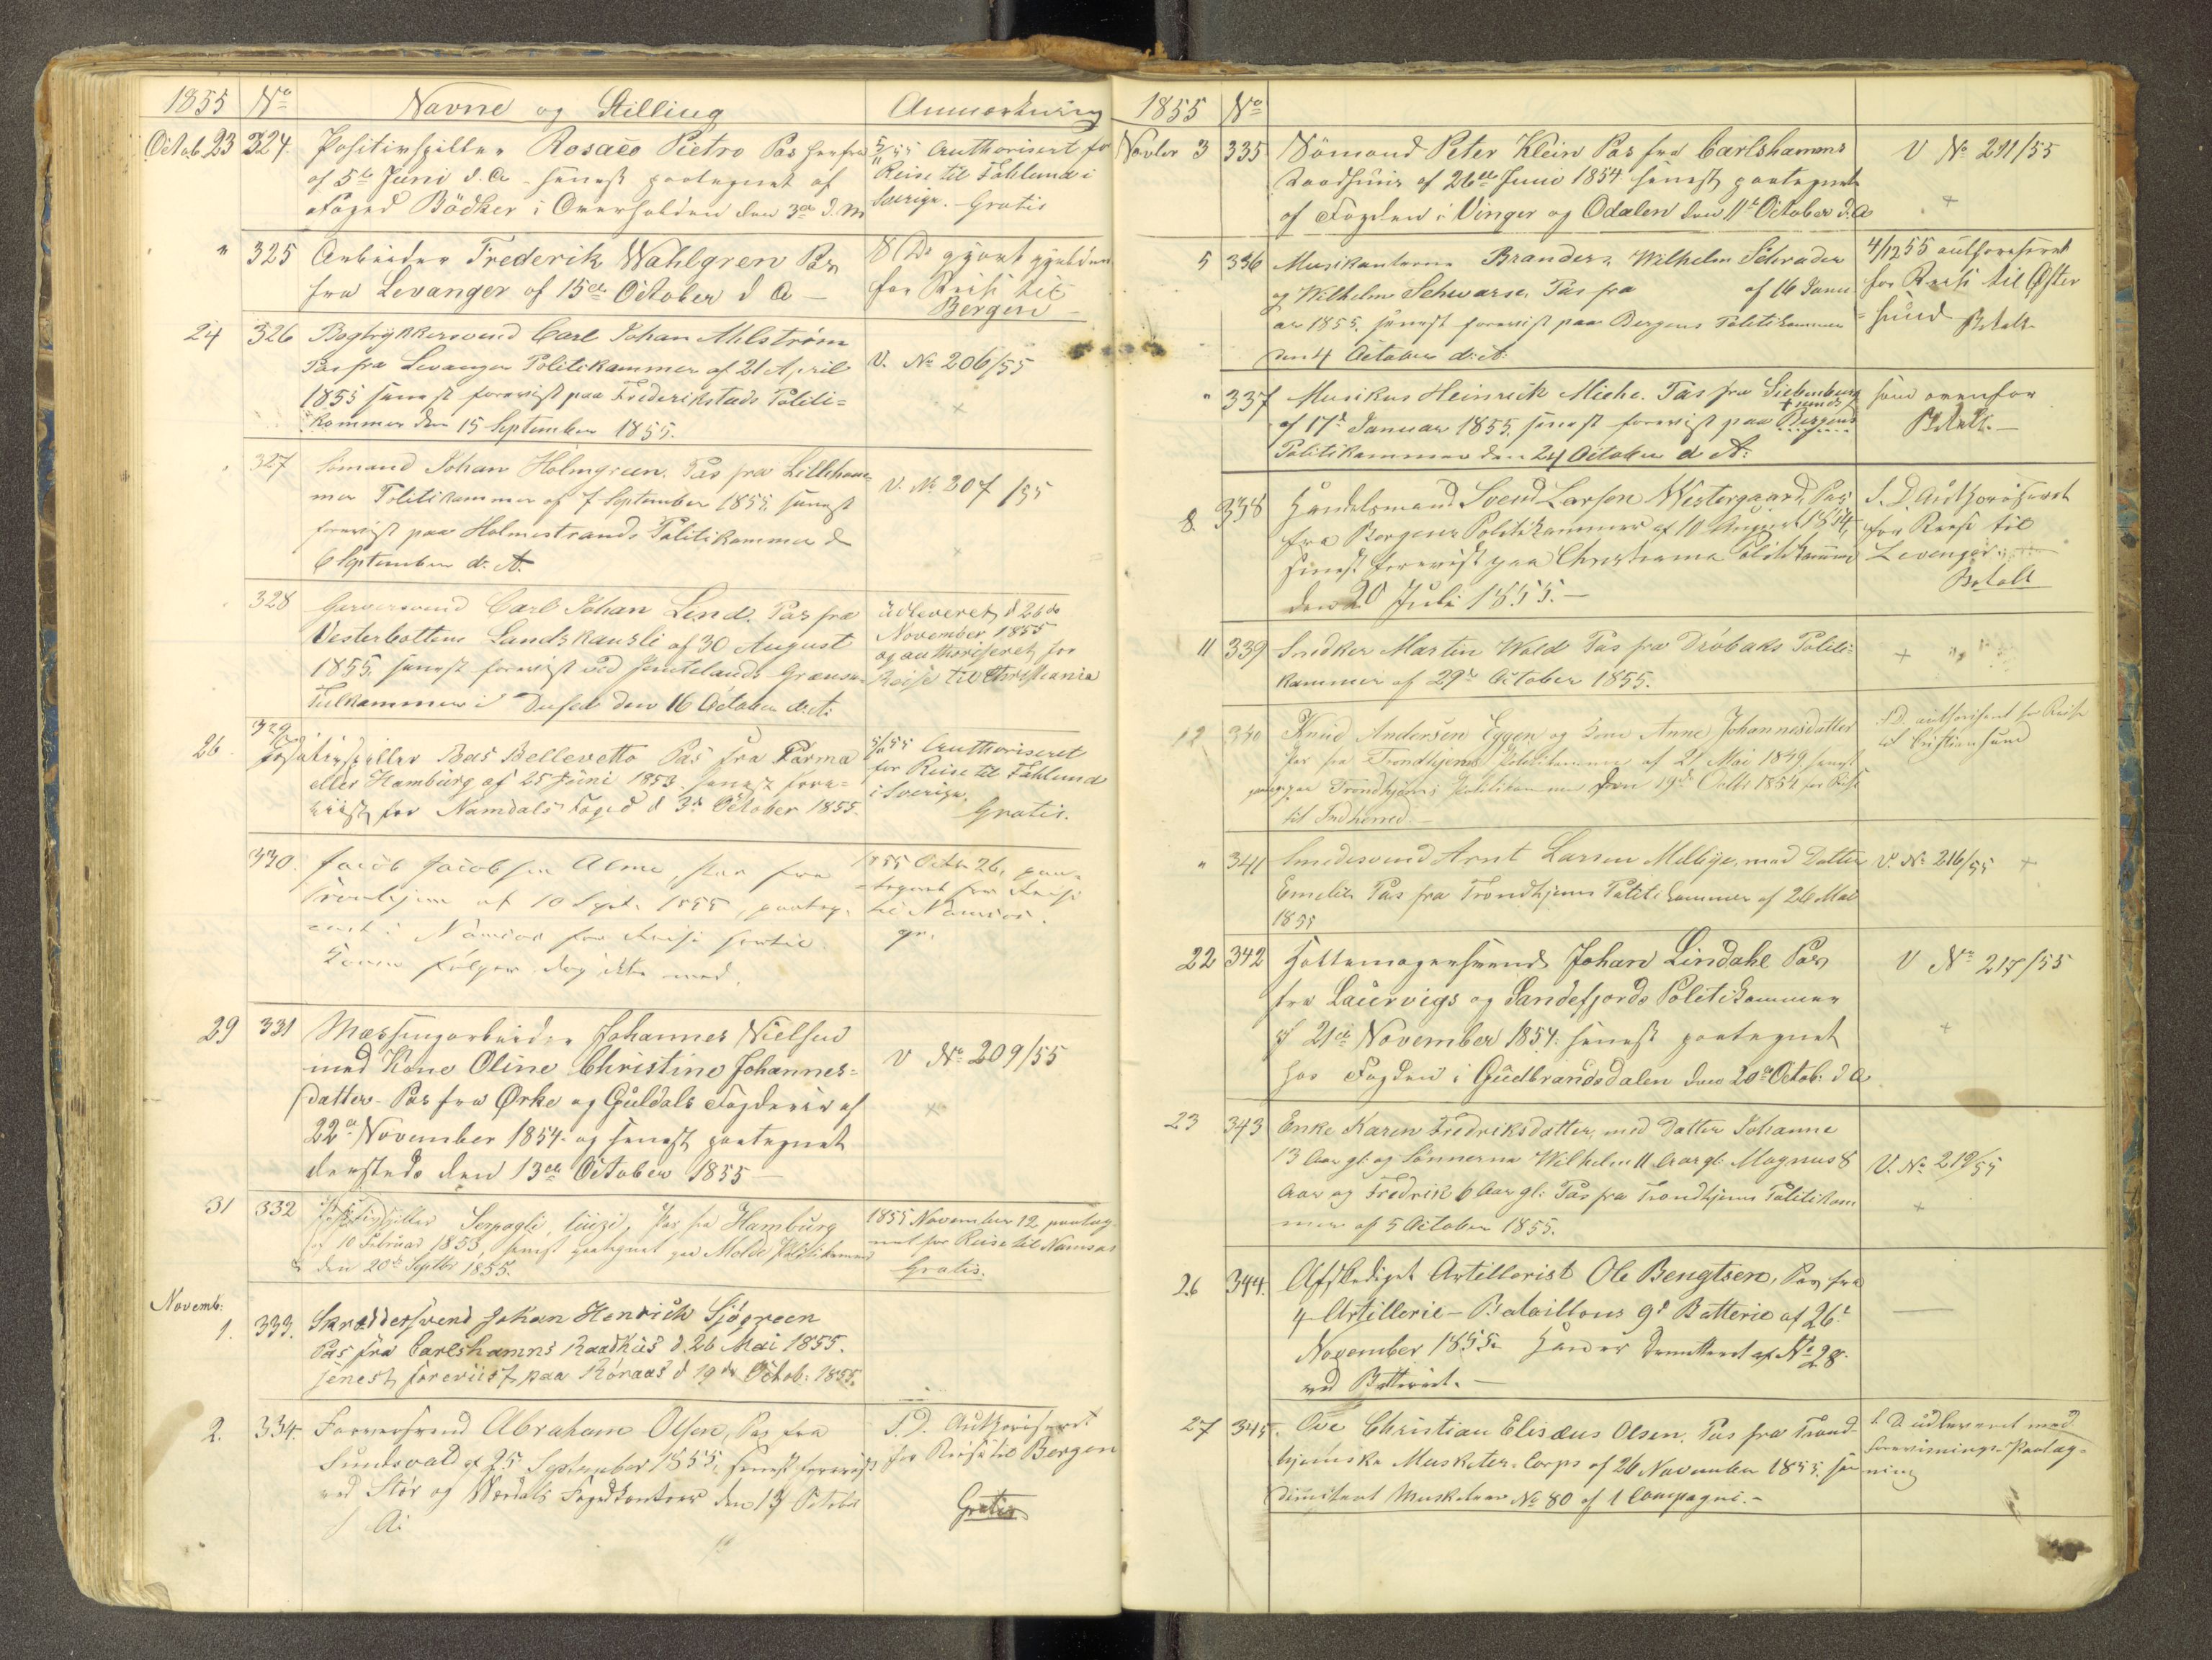 1855 No Navne og Stilling Anmærkning
Octob 23 324. Positivspiller Rosaeo Pietro Pas herfra
af 5te Juni d. A. senest paategnet af
Foged Bödker i Overhalden den 3die d. M
5/11 55 Authoriseret for
Reise til Fahlund i
Sverige. Gratis
" 325 Arbeider Frederik Wahlgren Pas
fra Levanger af 15de October d A –
S D gjort gjelden
for Reise til
Bergen –
24 326 Bogtrykkersvend Carl Johan Ahlström
Pas fra Levanger Politikammer af 21 April
1855 senest forevist paa Frederikstads Politi=
kammer den 15 September 1855.
V. No 206/55
327 Sömand Johan Holmgreen. Pas fra Lilleham=
mer Politikammer af 7 September 1855, senest
forevist paa Holmestrands Politikammer d
6 September d. A.
V. No 207/55
328 Garversvend Carl Johan Lind. Pas fra
Vesterbottens Landskansli af 30 August
1855. senest forevist ved Jemtelands Grændse
Tulkammer i Dufed den 16 October d. A.
udleveret d 26de
November 1855
og authoriseret for
Reise til Christiania
26 329 Positivspiller Bas Bellevetto Pas fra Parma
eller Hamburg af 25 Juni 1853. senest fore=
viist for Namdals Foged d 3de October 1855.
5/11 55 Authoriseret
for Reise til Fahlund
i Sverige.
Gratis.
330. Jacob Jacobsen Alme, Pas fra
Trondhjem af 10 Sept. 1855, paateg=
net i Namsos for Reise hertil.
Konen følger dog ikke med.
1855 Octbr 26, paa=
tegnet for Reise
til Namsos.
gr.
29 331 Messingarbeider Johannes Nielsen
med Kone Oline Christine Johannes=
datter. Pas fra Ørke og Guldals Fogderie af
22de November 1854. og senest paategnet
dersteds den 13de October 1855 –
V No 209/55
31 332 Positivspiller Serpagli, Liuzi, Pas fra Hamburg
af 10 Februar 1853, senest paategnet paa Molde Politikammer
den 20de Septbr 1855.
1855 November 12 paateg=
net for Reise til Namsos
Gratis.
Novemb:
1. 333. Skræddersvend Johan Henrich Sjögreen
Pas fra Carlshamns Raadhus d. 26 Mai 1855.
senest foreviist paa Röraas d 19de Octob. 1855.
2. 334. Farversvend Abraham Olsen, Pas fra
Sundsvald af 25 September 1855, senest forevist
ved Stör og Værdals Fogedkontoir den 13 October
d A:
S. D. Authoriseret
for Reise til Bergen
Gratis
1855 No
Novbr 3 335 Sömand Peter Klein Pas fra Carlshamns
Raadhuus af 26de Juni 1854 senest paategnet
af Fogden i Vinger og Odalen den 11te October d. A
V No 211/55
5 336 Musikanterne Branders, Wilhelm Schrader
og Wilhelm Schwarse, Pas fra af 16 Janu
ar 1855. senest forevist paa Bergens Politikammer
den 4 October d: A.
4/12 55 authoriseret
for Reise til Øster
=sund Betalt
" 337 Musikus Heinrich Miche. Pas fra Siebenburg
af 17de Januar 1855. senest forevist paa Bergens
Politikammer den 24 October d. A:
som ovenfor
Betalt. –
8. 338 Handelsmand Svend Larsen Westergaard, Pas
fra Bergens Politikammer af 10 August 1854,
senest forevist paa Christiania Politikammer
den 20 Juli 1855. –
S. D. Authoriseret
for Reise til
Levanger.
Betalt
11 339 Snedker Martin Wold Pas fra Dröbaks Politi=
kammer af 29de October 1855.
12 340 Knud Andersen Eggen og Kone Anne Johannesdatter
Pas fra Trondhjems Politikammer af 21 Mai 1849, senest
paategn. paa Trondhjems Politikammer den 19de Octbr 1854 for Reise
til Indherred. –
S. D. authoriseret for Reise
til Cristiansund
" 341 Smedesvend Arnt Larsen Mellije, med Datter
Emelie Pas fra Trondhjems Politikammer af 26 Mai
1855
V. No 216/55
22 342 Pottemagersvend Johan Lindahl Pas
fra Laurvigs og Sandefjords Politikammer
af 21de November 1854. senest paategnet
hos Fogden i Gudbrandsdalen den 20de Octob: d A
V No 217/55
23 343 Enke Karen Fredriksdatter, med Datter Johanne
13 Aar gl: og Sönnerne Wilhelm 11 Aar gl. Magnus 8
Aar og Fredrik 6 Aar gl: Pas fra Trondhjems Politikam
mer af 5 October 1855.
V. No 219/55
26 344. Afskediget Artillerist Ole Bengtsen, Pas fra
4 Artillerie – Bataillons 9de Batterie af 26de
November 1855. Han er Demitteret af No 28.
ved Batteriet. –
27 345. Ove Christian Elisæus Olsen. Pas fra Trond=
hjemske Musketer Corps af 26 November 1855. som
dimiteret Musketeer No 80 af 1 Compagni. –
S. D. udleveret med
Forevisnings-Paateg=
ning